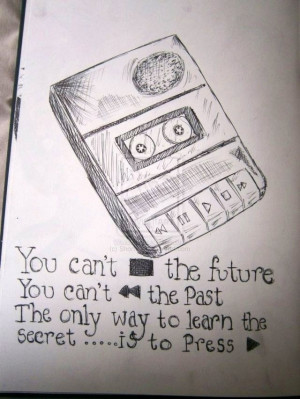 You can't ■ the future
You can't ◀◀ the Past
The only way to learn the
secret .....is to Press ▶